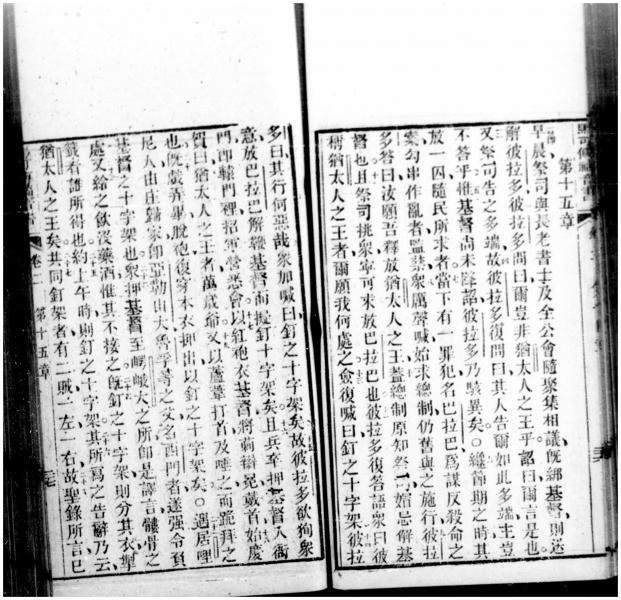 第十五章
早晨祭司與長老書士及全公會隨聚集相議旣綁基督則送
解彼拉多彼拉多問曰爾豈非猶太人之王乎謟曰爾言是也
又祭司告之多端故彼拉多復問曰其人告爾如此多端主豈
不答乎惟基督尙未謟彼拉多乃駭異矣○纔節期之時其
放一囚隨民所求者當下有一罪犯名巴拉巴爲謀反殺命之
案勾串作亂者監禁衆厲聲喊始求總制仍舊與之施行彼拉
多答曰汝願吾釋放猶太人之王蓋總制原知祭司媢忌解基
督也且祭司挑衆寧可求放巴拉巴也彼拉多復答語衆曰彼
稱猶太人之王者爾願我何處之僉復喊曰釘之十字架彼拉
多曰其行何惡哉衆加喊曰釘之十字架矣故彼拉多欲狥衆
意放巴拉巴解鞭基督而擬釘十字架矣且兵卒押基督入衙
門卽轅門裡招軍營悉會以紅袍衣基督將荊辮冕戴首始慶
賀曰猶太人之王者萬歲爺又以蘆葦打首及唾之而跪拜之
也旣戱弄畢脫袍復穿本衣押出以釘之十字架矣○遇居哩
尼人由庄家卽亞勒山大魯孚等之父名西門者遂强令負
基督之十字架也衆押基督至大之所卽是譯言髏骨之
處又給之飲沒藥酒惟其不接之旣釘之十字架則分其衣掣
籤看誰所得也約上午時則釘之十字架其所寫之告辭乃云
猶太人之王矣其同釘架者有二賊一左一右故聖錄所言已
卷二 第十五章